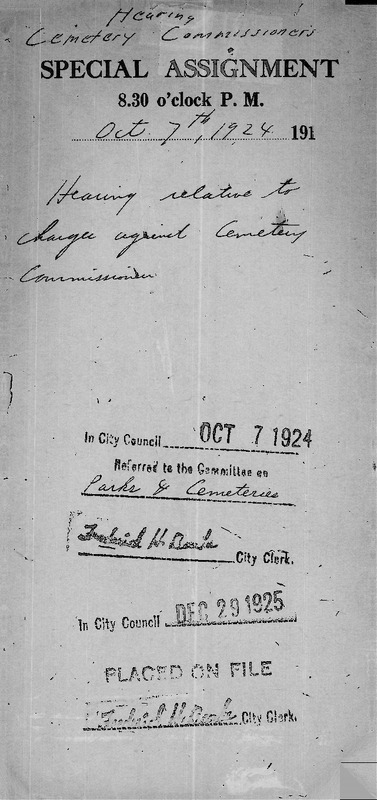 Hearing
Cemetery Commissioners
SPECIAL ASSIGNMENT
8.30 o'clock P. M.
Oct 7th, 1924 191
Hearing relative to
charges against Cemetery
Commissioner
In City Council OCT 7 1924
Referred to the Committee on
Parks & Cemeteries
City Clerk.
In City Council DEC 29 1925
PLACED ON FILE
City Clerk.